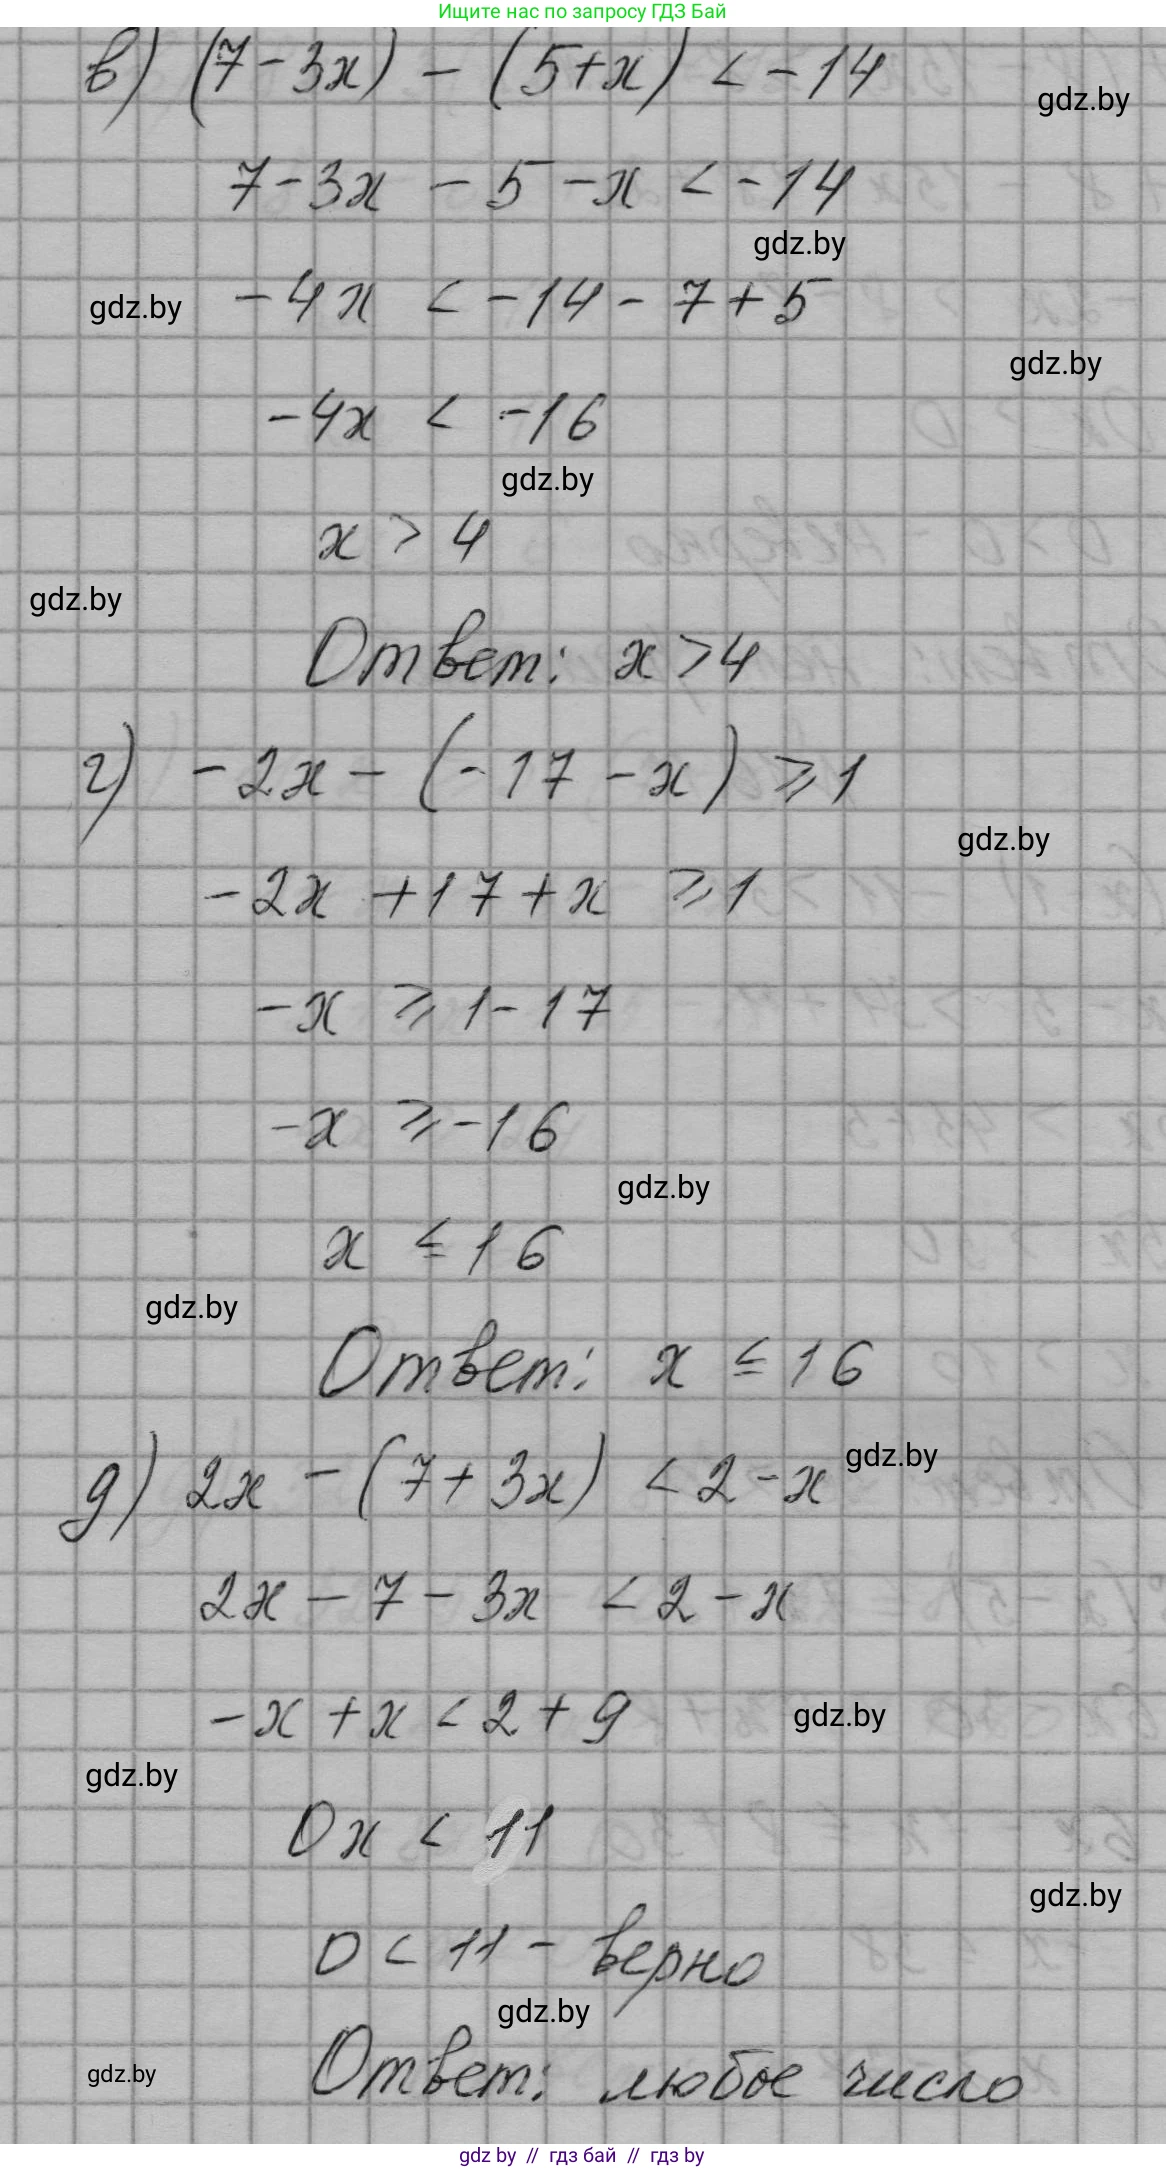 Ищите нас по запросу ГДЗ Бай
в) (7-3x) - (5+x) < -14
gdz.by
7-3x - 5 -x < -14
gdz.by
gdz.by -4x < -14 - 7 + 5
gdz.by
-4x < -16
gdz.by
x > 4
gdz.by
Ответ: x > 4
г) -2x - (-17 - x) ⩾ 1
gdz.by
-2x + 17 + x ⩾ 1
-x ⩾ 1 - 17
-x ⩾ -16
gdz.by
x ≤ 16
gdz.by
Ответ: x ≤ 16
д) 2x - (7 + 3x) < 2 - x gdz.by
2x - 7 - 3x < 2 - x
-x + x < 2 + 9 gdz.by
gdz.by
0x < 11
gdz.by
0 < 11 - верно
gdz.by
gdz.by Ответ: любое число
gdz by // гдз бай // гдз by